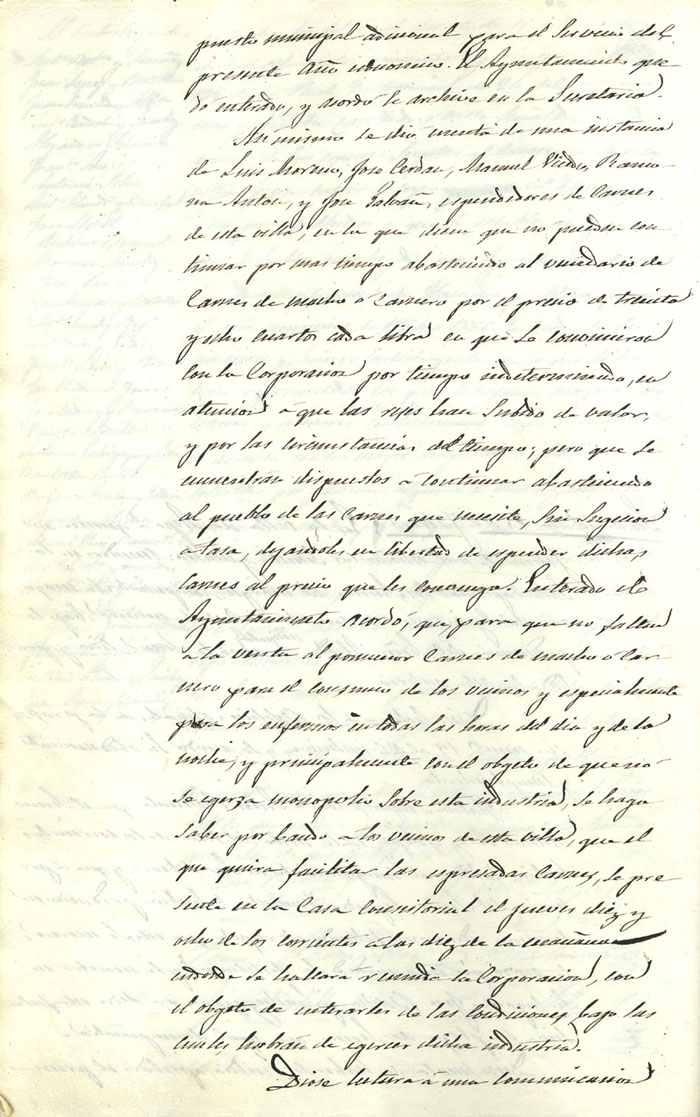 puesto municipal adicional para el Servicio del
presente año economico. El Ayuntamiento que-
dó enterado, y acordó le archive en la Secretaria.
Asi mismo se dio cuenta de una instancia
de Luis Moreno, Jose Cerdan, Manuel Viedes, Ramo-
na Anton, y Jose Galvañ, espendedores de Carnes
de esta villa, en la que dicen que no pueden con-
tinuar por mas tiempo abasteciendo al vecindario de
Carnes de macho o Carnero por el precio de treinta
y ocho cuartos cada libra en que se convinieron
con la Corporacion por tiempo indeterminado, en
atencion á que las reses han subido de valor,
y por las circunstancias del tiempo; pero que se
encuentran dispuestos á continuar abasteciendo
al pueblo de las Carnes que necesite, sin sugecion
a tasa, dejandoles en libertad de espender dichas
Carnes al precio que les convenga. Enterado el
Ayuntamiento acordó, que, para que no falten
a la venta al pormenor Carnes de macho o Car-
nero para el consumo de los vecinos y especialmente
para los enfermos en todas las horas del dia y de la
noche, y principalmente con el objeto de que no
se egerza monopolio sobre esta industria, se haga
saber por bando a los vecinos de esta villa, que el
que quiera facilitar las espresadas Carnes, se pre-
sente en la Casa Consistorial el jueves diez y
ocho de los corrientes á las diez de la mañana
endonde se hallará reunida la Corporacion, con
el objeto de enterarles de las condiciones bajo las
cuales habrán de egercer dicha industria.
Diose lectura á una comunicacion